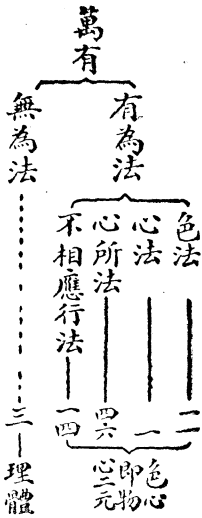 萬有
有為法
色法
一一
心法
一
心所法
四六
不相應行法
一四
色心
即物
心二元
無為法
三
理體